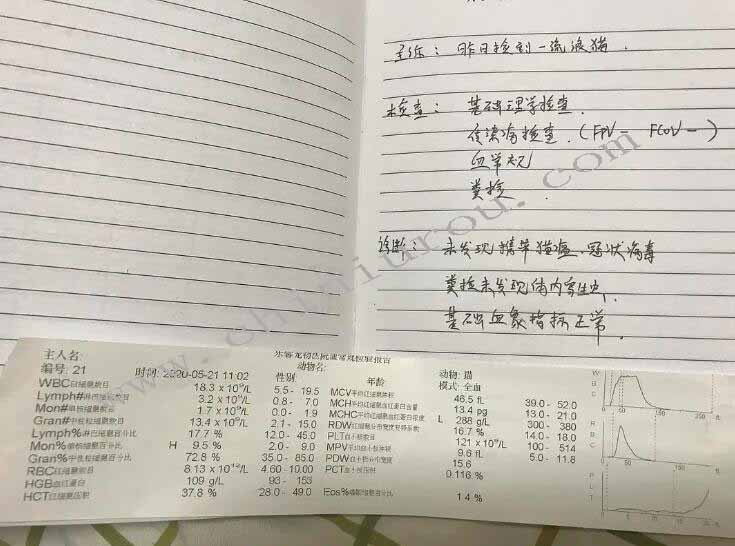 主诉: 昨日捡到一流浪猫.
检查: 基础理学检查.
传染病检查. (FPV - FCoV -)
血常规
粪检.
诊断: 未发现携带猫瘟、冠状病毒
粪检未发现体内寄生虫.
基础血象指标正常.
www.chixiurou.com
宠物医院血常规检验报告
主人名: 动物名:
编号: 21 时间: 2020-05-21 11:02 性别: 年龄 动物: 猫
模式: 全血
WBC白细胞数目 18.3 x 10⁹/L 5.5 - 19.5
Lymph#淋巴细胞数目 3.2 x 10⁹/L 0.8 - 7.0
Mon#单核细胞数目 1.7 x 10⁹/L 0.0 - 1.9
Gran#中性粒细胞数目 13.4 x 10⁹/L 2.1 - 15.0
Lymph%淋巴细胞百分比 17.7 % 12.0 - 45.0
Mon%单核细胞百分比 H 9.5 % 2.0 - 9.0
Gran%中性粒细胞百分比 72.8 % 35.0 - 85.0
RBC红细胞数目 8.13 x 10¹²/L 4.60 - 10.00
HGB血红蛋白 109 g/L 93 - 153
HCT红细胞压积 37.8 % 28.0 - 49.0
MCV平均红细胞体积 46.5 fL 39.0 - 52.0
MCH平均红细胞血红蛋白含量 13.4 pg 13.0 - 21.0
MCHC平均红细胞血红蛋白浓度 L 288 g/L 300 - 380
RDW红细胞分布宽度变异系数 16.7 % 14.0 - 18.0
PLT血小板数目 121 x 10⁹/L 100 - 514
MPV平均血小板体积 9.6 fL 5.0 - 11.8
PDW血小板分布宽度 15.6
PCT血小板压积 0.116 %
Eos%嗜酸细胞百分比 1.4 %
WBC
RBC
PLT